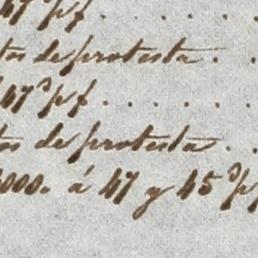 47 p f . . . .
tos de protesta . .
47 p f . . . .
tos de protesta . .
000. á 47 y 45 p